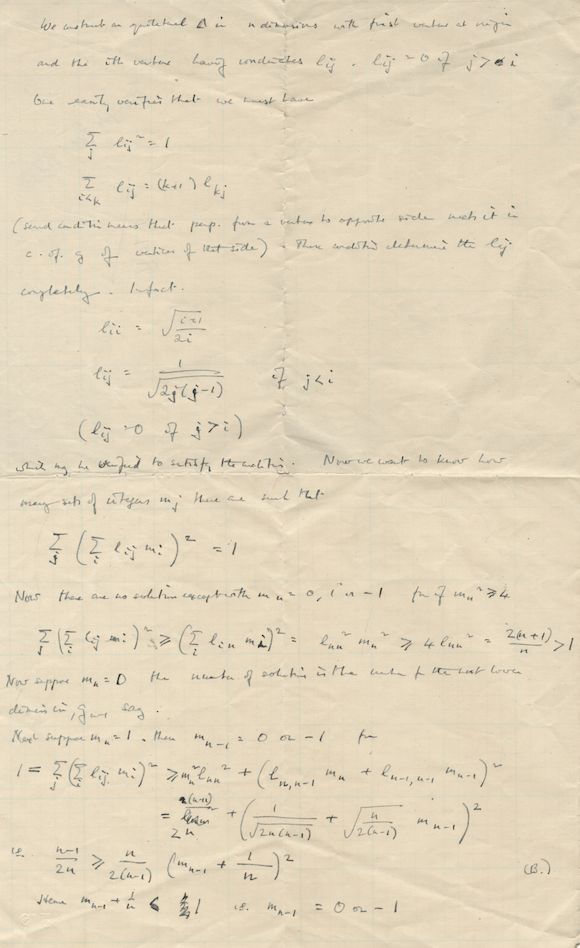 We construct an equilateral Δ in n dimensions with first vertex at origin
and the ith vertex having coordinates lij . lij = 0 if j > i
One easily verifies that we must have
∑j lij² = 1
∑i<k lij = (k+1) lkj
(second condition means that perp. from a vertex to opposite side meets it in
c. of. g of vertices of that side) . These conditions determine the lij
completely . In fact .
lii = √((i+1)/2i)
lij = 1/√(2j(j-1)) if j<i
(lij = 0 if j>i)
which may be verified to satisfy the conditions. Now we want to know how
many sets of integers mj there are such that
∑j (∑i lij mi)² = 1
Now there are no solutions except with mn = 0, 1 or -1 for if mn² ⩾ 4
∑j (∑i lij mi)² ⩾ (∑i lin mi)² = lnn² mn² ⩾ 4lnn² = 2(n+1)/n > 1
Now suppose mn = 0 the number of solutions is the number for the next lower
dimension, gn-1 say .
Next suppose mn = 1 . then mn-1 = 0 or -1 for
1 = ∑j (∑i lij mi)² ⩾ mn² lnn² + (ln,n-1 mn + ln-1,n-1 mn-1)²
= (n+1)/2n + (1/√(2n(n-1)) + √(n/2(n-1)) mn-1)²
i.e. (n-1)/2n ⩾ n/2(n-1) (mn-1 + 1/n)²
(B.)
Hence mn-1 + 1/n < 1 i.e. mn-1 = 0 or -1